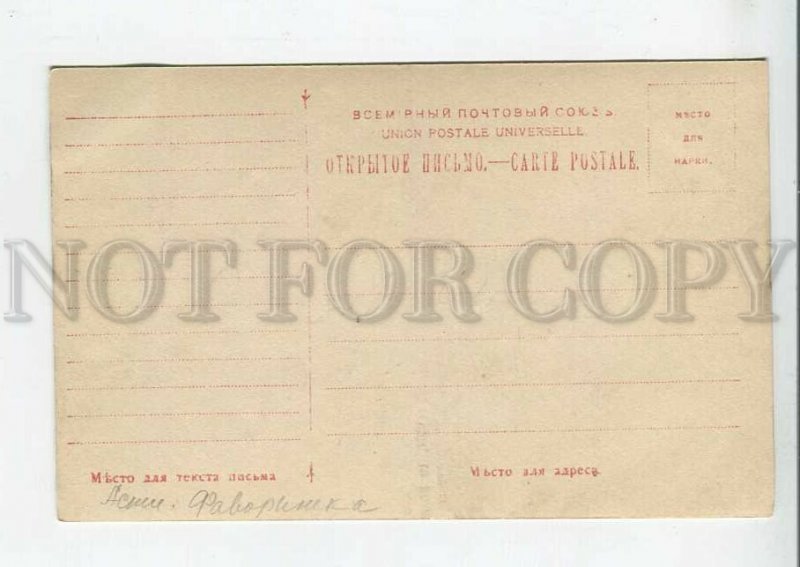 ВСЕМІРНЫЙ ПОЧТОВЫЙ СОЮЗЪ.
UNION POSTALE UNIVERSELLE.
ОТКРЫТОЕ ПИСЬМО.—CARTE POSTALE.
МѢСТО
ДЛЯ
МАРКИ.
NOT FOR COPY
Мѣсто для текста письма
Мѣсто для адреса
Асти. Фаворитка